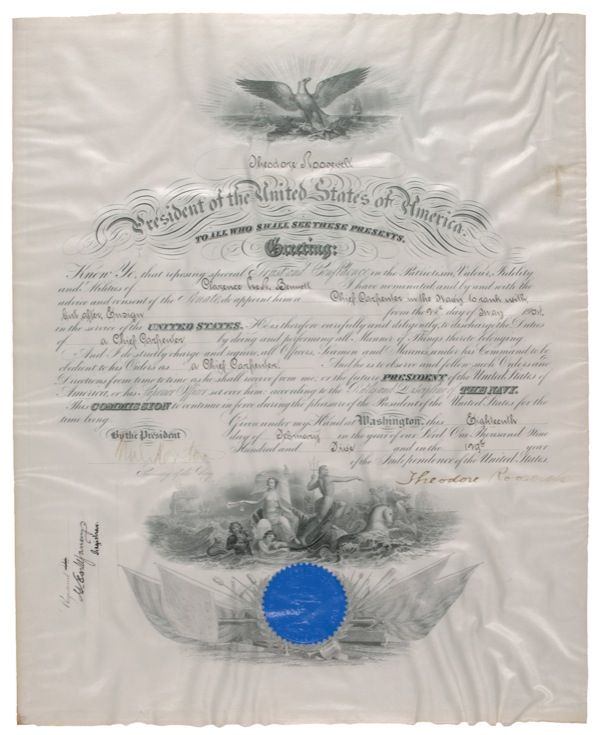 Theodore Roosevelt
President of the United States of America.
TO ALL WHO SHALL SEE THESE PRESENTS,
Greeting:
Know Ye, that reposing special Trust and Confidence in the Patriotism, Valour, Fidelity
and Abilities of Clarence I have nominated and by and with the
advice and consent of the Senate do appoint him a Chief Carpenter in the Navy to rank with
but after Ensign from the day of
in the service of the UNITED STATES. He is therefore carefully and diligently to discharge the Duties
of a Chief Carpenter by doing and performing all Manner of Things thereto belonging
And I do strictly charge and require all Officers, Seamen and Marines under his Command to be
obedient to his Orders as a Chief Carpenter And he is to observe and follow such Orders and
Directions from time to time as he shall receive from me, or the future PRESIDENT of the United States of
America, or his Superior Officer set over him, according to the Rules and Discipline of THE NAVY.
This COMMISSION to continue in force during the pleasure of the President of the United States, for the
time being.
Given under my Hand at Washington, this Eighteenth
By the President
day of February in the year of our Lord One Thousand Nine
Hundred and and in the 129th year
Secretary of the Navy
of the Independence of the United States.
Theodore Roosevelt
Registered